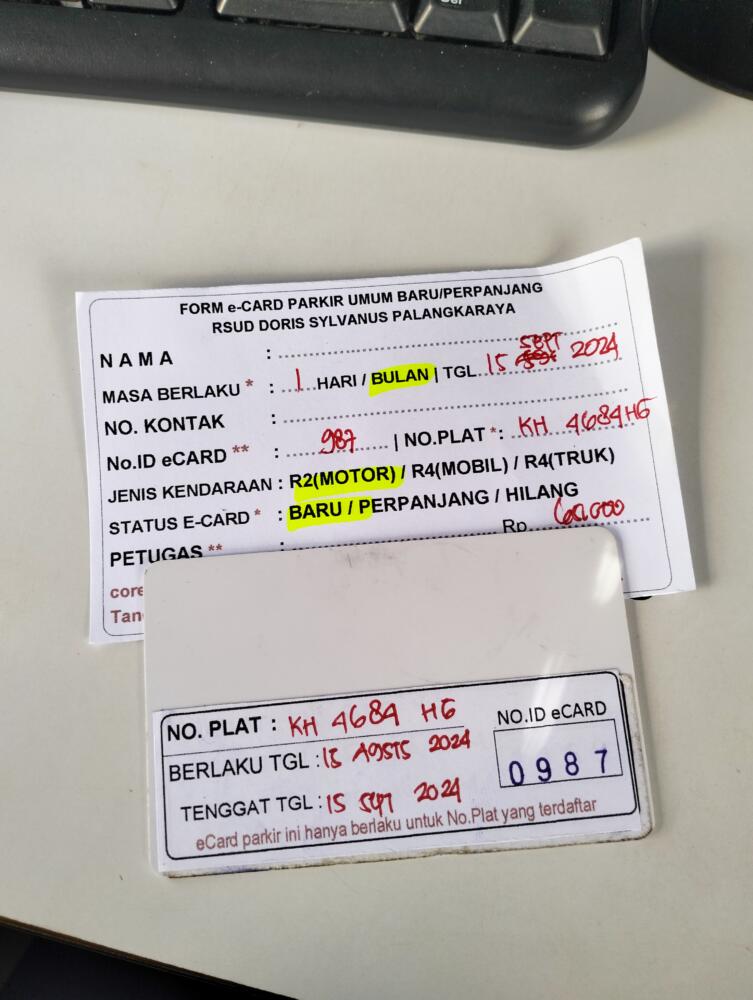 FORM e-CARD PARKIR UMUM BARU/PERPANJANG
RSUD DORIS SYLVANUS PALANGKARAYA
NAMA :
MASA BERLAKU * : 1 HARI / BULAN | TGL 15 SEPT 2024
NO. KONTAK :
No.ID eCARD ** : 987 | NO.PLAT * : KH 4684 HG
JENIS KENDARAAN : R2(MOTOR) / R4(MOBIL) / R4(TRUK)
STATUS E-CARD * : BARU / PERPANJANG / HILANG
PETUGAS ** : Rp. 60.000
core
Tan
NO. PLAT : KH 4684 HG
NO.ID eCARD
BERLAKU TGL : 15 AGSTS 2024
0987
TENGGAT TGL : 15 SEPT 2024
eCard parkir ini hanya berlaku untuk No.Plat yang terdaftar